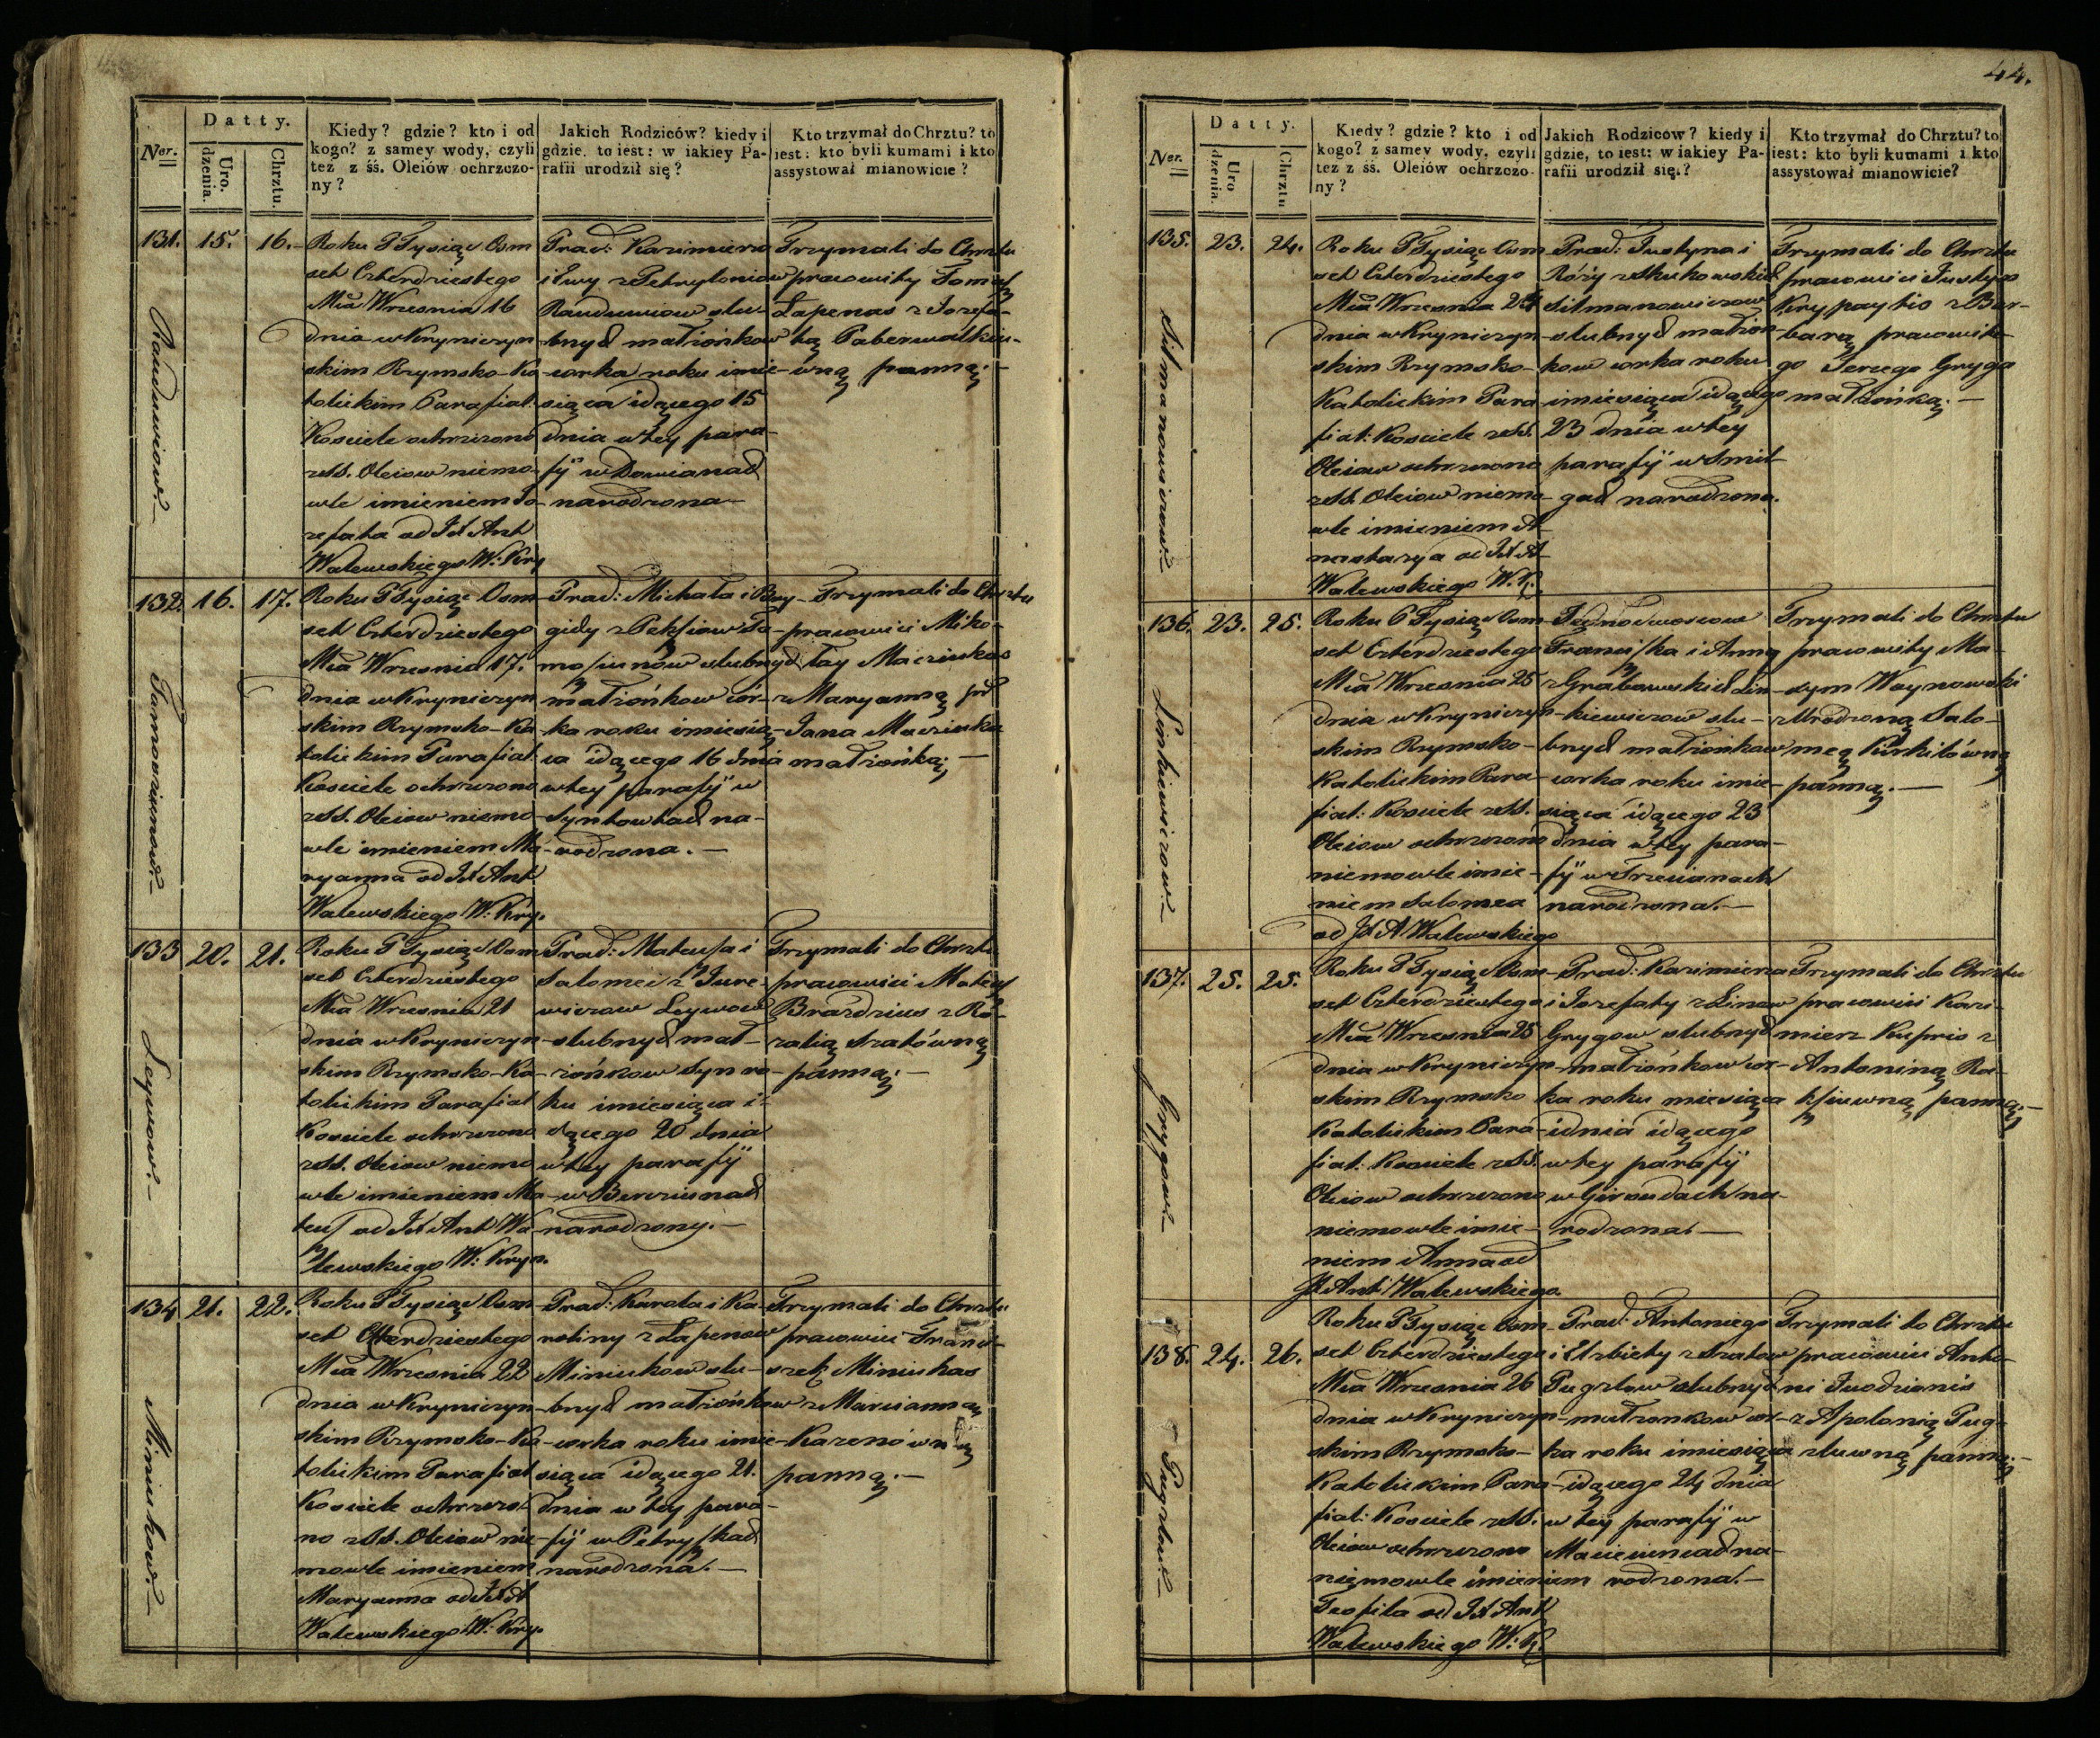 44.
Datty.
Ner.
Uro. dzenia.
Chrztu.
Kiedy? gdzie? kto i od
kogo? z samey wody, czyli
też z śś. Oleiów ochrzczo-
ny?
Jakich Rodziców? kiedy i
gdzie, to iest: w iakiey Pa-
rafii urodził się?
Kto trzymał do Chrztu? to
iest: kto byli kumami i kto
assystował mianowicie?
131. 15. 16.
Rauduwiow.
Roku Tysiąc Osm
set Czterdziestego
Mca Wrzesnia 16
dnia w Kryniczyn
skim Rzymsko-Ka
tolickim Parafial:
Kosciele ochrzczono
z SS. Oleiow niemo-
wle imieniem Jo-
zefata od JX Ant
Walewskiego W: Kry
Prac: Kazimierza
i Ewy z Petryloniow
Rauduwiow slu-
bnych małżonkow
corka roku i mie-
siąca idącego 15
dnia w tey para-
fij w Dowianach
narodzona
Trzymali do Chrztu
pracowity Tomasz
Łapenas z Jozefa-
tą Paberwalkiu-
wną panną.
132. 16. 17.
Tamoszunow.
Roku Tysiąc Osm
set Czterdziestego
Mca Wrzesnia 17.
dnia w Kryniczyn
skim Rzymsko-Ka
tolickim Parafial:
Kosciele ochrzczono
z SS. Oleiow niemo
wle imieniem Ma
ryanna od JX Ant
Walewskiego W: Kry.
Prac: Michała i Bry-
gidy z Pekszow Ta-
moszunow slubnych
małżonkow cor-
ka roku i miesią-
ca idącego 16 dnia
w tey parafij w
Syntowtach na-
rodzona.
Trzymali do Chrztu
pracowici Miko-
łay Maciukas
z Maryanną
Jana Maciuka
małżonką.
133 20. 21.
Leywow.
Roku Tysiąc Osm
set Czterdziestego
Mca Wrzesnia 21
dnia w Kryniczyn
skim Rzymsko-Ka
tolickim Parafial
Kosciele ochrzczono
z SS. Oleiow niemo
wle imieniem Ma
teusz od JX Ant Wa
lewskiego W: Kryn.
Prac: Mateusza i
Salomei z Jure
wiczow Leywow
slubnych mał-
żonkow syn ro-
ku i miesiąca i-
dącego 20 dnia
w tey parafij
w Bercziunach
narodzony.
Trzymali do Chrztu
pracowici Mateusz
Brazdzius z Ro-
zalią Szatówną
panną.
134 21. 22.
Miniukow.
Roku Tysiąc Osm
set Czterdziestego
Mca Wrzesnia 22
dnia w Kryniczyn
skim Rzymsko-Ka
tolickim Parafial
Kosciele ochrzczo
no z SS. Oleiow nie
mowle imieniem
Maryanna od JX A
Walewskiego W: Kry.
Prac: Karola i Ka-
roliny z Łapenow
Miniukow slu-
bnych małżonkow
corka roku i mie-
siąca idącego 21.
dnia w tey para-
fij w Petryszkach
narodzona.
Trzymali do Chrztu
pracowici Franci-
szek Miniukas
z Marcianną
Karenówną
panną.
Datty.
Ner.
Uro. dzenia.
Chrztu
Kiedy? gdzie? kto i od
kogo? z samey wody, czyli
tez z śś. Oleiów ochrzczo-
ny?
Jakich Rodziców? kiedy i
gdzie, to iest: w iakiey Pa-
rafii urodził się?
Kto trzymał do Chrztu? to
iest: kto byli kumami i kto
assystował mianowicie?
135. 23. 24.
Silmanowiczow.
Roku Tysiąc Osm
set Czterdziestego
Mca Wrzesnia 24
dnia w Kryniczyn
skim Rzymsko-
Katolickim Para
fial: Kosciele z SS.
Oleiow ochrzczono
z SS. Oleiow niemo
wle imieniem A
nastazya od JX A
Walewskiego W. K.
Prac: Justyna i
Róży z Skukowskich
Silmanowiczow
slubnych małżon
kow corka roku
i miesiąca idącego
23 dnia w tey
parafij w Smil
gach narodzona.
Trzymali do Chrztu
pracowici Justyn
Krypaytis z Bar-
barą pracowite-
go Jerzego Gryga
małżonką.
136. 23. 25.
Linkiewiczow.
Roku Tysiąc Osm
set Czterdziestego
Mca Wrzesnia 25
dnia w Kryniczyn
skim Rzymsko-
Katolickim Para-
fial: Kosciele z SS.
Oleiow ochrzczono
niemowle imie-
niem Salomea
od JX A Walewskiego
Jednodworcow
Franciszka i Anny
z Grabowskich Lin-
kiewiczow slu-
bnych małżonkow
corka roku i mie-
siąca idącego 23
dnia w tey para-
fij w Trzcianach
narodzona.
Trzymali do Chrztu
pracowity Ma-
xym Woynowski
z Urodzoną Salo-
meą Kirkilówną
panną.
137. 25. 25.
Grygow.
Roku Tysiąc Osm
set Czterdziestego
Mca Wrzesnia 25
dnia w Kryniczyn
skim Rzymsko
Katolickim Para-
fial: Kosciele z SS.
Oleiow ochrzczono
niemowle imie-
niem Anna od
JX Ant: Walewskiego.
Prac: Kazimierza
i Jozefaty z Linow
Grygow slubnych
małżonkow cor-
ka roku miesiąca
i dnia idącego
w tey parafij
w Girsudach na-
rodzona.
Trzymali do Chrztu
pracowici Kazi-
mierz Kupris z
Antoniną Ra-
kszewną panną.
138. 24. 26.
Pugzlow.
Roku Tysiąc Osm
set Czterdziestego
Mca Wrzesnia 26
dnia w Kryniczyn
skim Rzymsko-
Katolickim Para
fial: Kosciele z SS.
Oleiow ochrzczono
niemowle imieniem
Teofila od JX Ant
Walewskiego W: K.
Prac: Antoniego
i Elzbiety z Szatow
Pugzlow slubnych
małżonkow cor-
ka roku i miesiąca
idącego 24 dnia
w tey parafij w
Macieiunach na-
rodzona.
Trzymali do Chrztu
pracowici Anto-
ni Juodzionis
z Apolonią Pug-
zluwną panną.